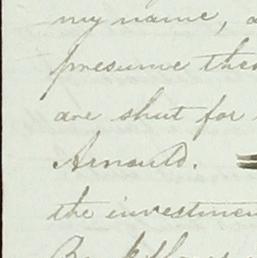 my name, a
presume the
are shut for
Arnould.
the investmen